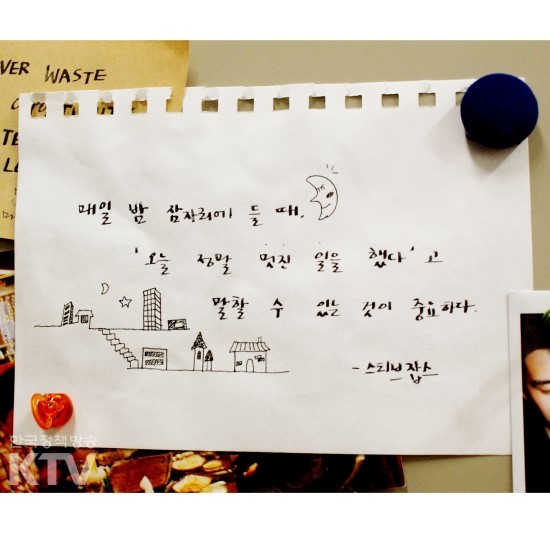 VER WASTE
매일 밤 잠자리에 들 때,
'오늘 정말 멋진 일을 했다'고
말할 수 있는 것이 중요하다.
- 스티브 잡스
한국정책방송
KTV